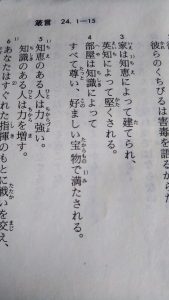 箴言 24. 1—15
彼らのくちびるは害毒を語るからだ
3 家は知恵によって建てられ、
英知によって堅くされる。
4 部屋は知識によって
すべて尊い、好ましい宝物で満たされる。
5 知恵のある人は力強い。
知識のある人は力を増す。
6 あなたはすぐれた指揮のもとに戦いを交え、